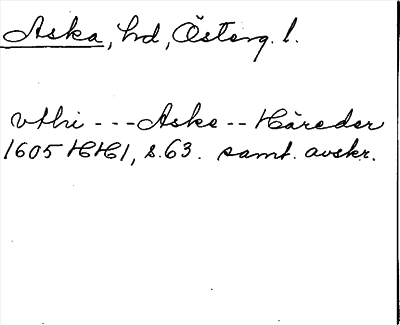 Aska, hd, Österg. l.
vthi - - - Aske - - Häreder
1605 HH1, s. 63. samt. avskr.